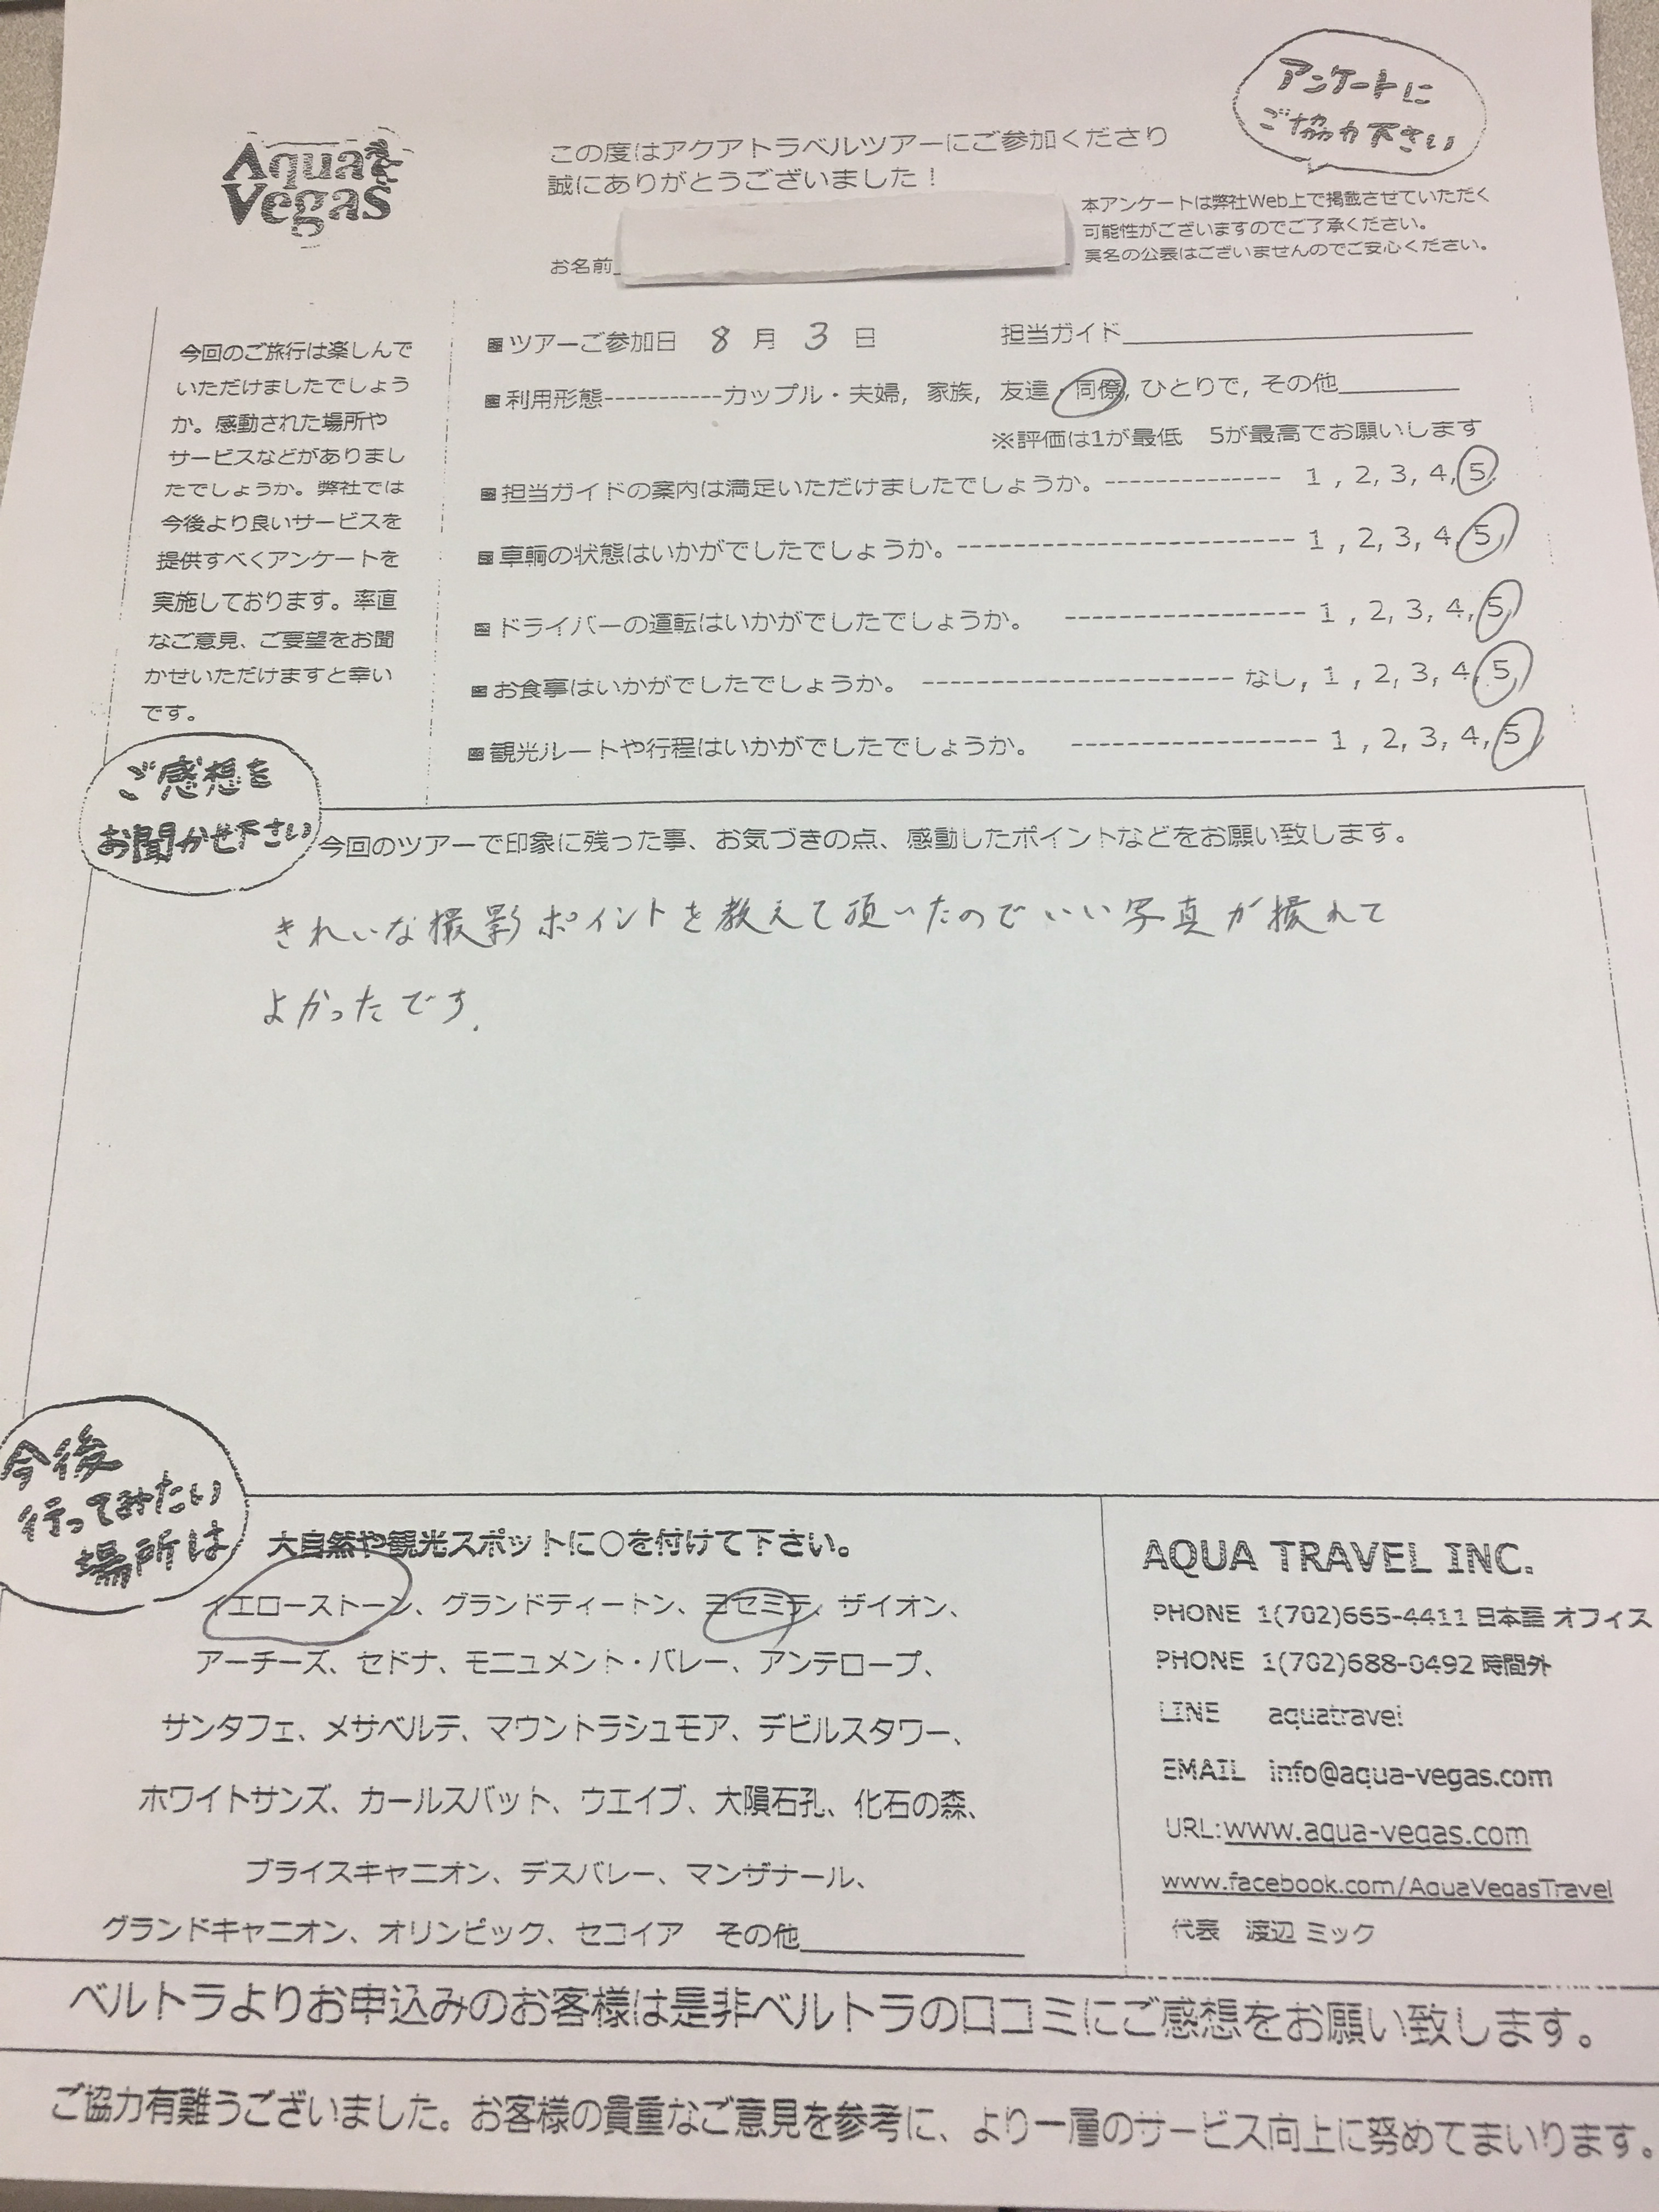 Aqua
Vegas
この度はアクアトラベルツアーにご参加くださり
誠にありがとうございました！
アンケートに
ご協力下さい
本アンケートは弊社Web上で掲載させていただく
可能性がございますのでご了承ください。
実名の公表はございませんのでご安心ください。
お名前
今回のご旅行は楽しんで
いただけましたでしょう
か。感動された場所や
サービスなどがありまし
たでしょうか。弊社では
今後より良いサービスを
提供すべくアンケートを
実施しております。率直
なご意見、ご要望をお聞
かせいただけますと幸い
です。
■ツアーご参加日 8 月 3 日 担当ガイド
■利用形態-----------カップル・夫婦, 家族, 友達・同僚, ひとりで, その他
※評価は1が最低 5が最高でお願いします
■担当ガイドの案内は満足いただけましたでしょうか。-------------- 1 , 2, 3, 4, 5
■車輌の状態はいかがでしたでしょうか。----------------------- 1 , 2, 3, 4, 5
■ドライバーの運転はいかがでしたでしょうか。 ---------------- 1 , 2, 3, 4, 5
■お食事はいかがでしたでしょうか。 --------------------- なし, 1 , 2, 3, 4, 5
■観光ルートや行程はいかがでしたでしょうか。 ---------------- 1 , 2, 3, 4, 5
ご感想を
お聞かせ下さい
今回のツアーで印象に残った事、お気づきの点、感動したポイントなどをお願い致します。
きれいな撮影ポイントを教えて頂いたのでいい写真が撮れて
よかったです.
今後
行ってみたい
場所は
大自然や観光スポットに○を付けて下さい。
イエローストーン、グランドティートン、ヨセミテ、ザイオン、
アーチーズ、セドナ、モニュメント・バレー、アンテロープ、
サンタフェ、メサベルデ、マウントラシュモア、デビルスタワー、
ホワイトサンズ、カールスバット、ウエイブ、大隕石孔、化石の森、
ブライスキャニオン、デスバレー、マンザナール、
グランドキャニオン、オリンピック、セコイア その他
AQUA TRAVEL INC.
PHONE 1(702)665-4411 日本語 オフィス
PHONE 1(702)688-0492 時間外
LINE aquatravel
EMAIL info@aqua-vegas.com
URL:www.aqua-vegas.com
www.facebook.com/AquaVegasTravel
代表 渡辺 ミック
ベルトラよりお申込みのお客様は是非ベルトラの口コミにご感想をお願い致します。
ご協力有難うございました。お客様の貴重なご意見を参考に、より一層のサービス向上に努めてまいります。